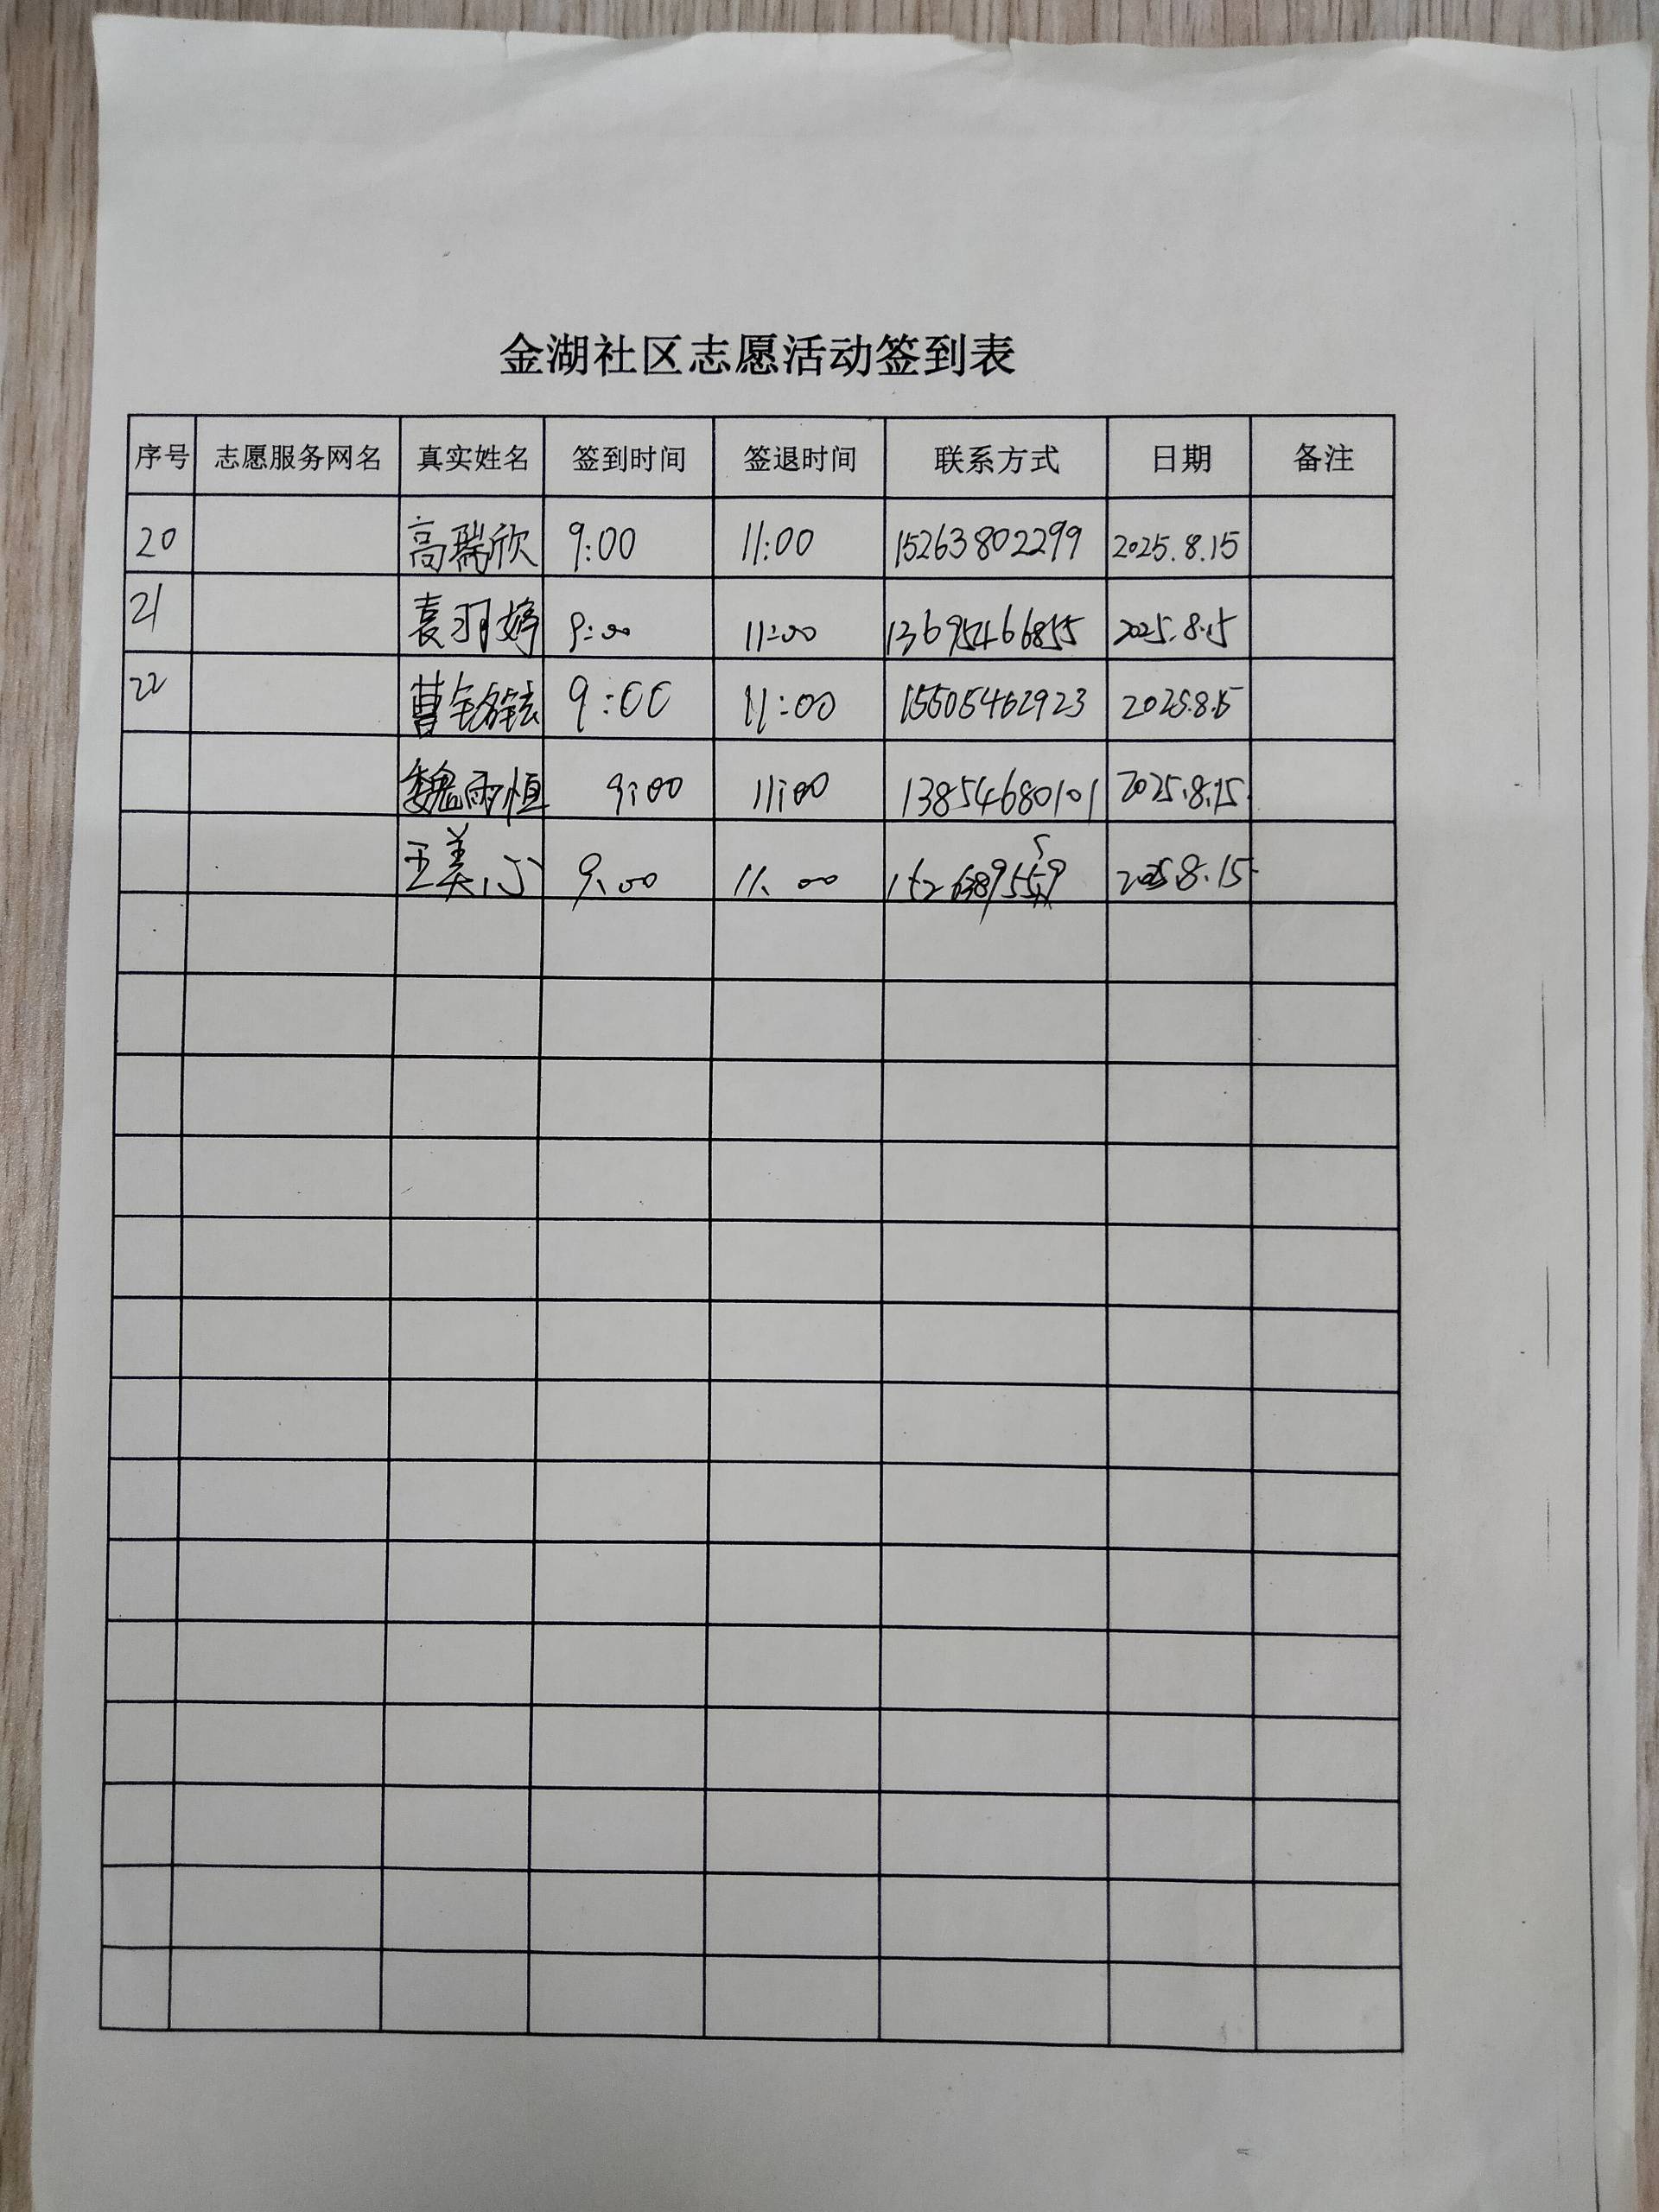 金湖社区志愿活动签到表
序号 志愿服务网名 真实姓名 签到时间 签退时间 联系方式 日期 备注
20 高瑞欣 9:00 11:00 15263802299 2025.8.15
21 袁羽婷 9:00 11:00 13695466855 2025.8.15
22 曹 9:00 11:00 15505462923 2025.8.15
魏雨恒 9:00 11:00 13854680101 2025.8.15
王美心 9:00 11:00 2025.8.15